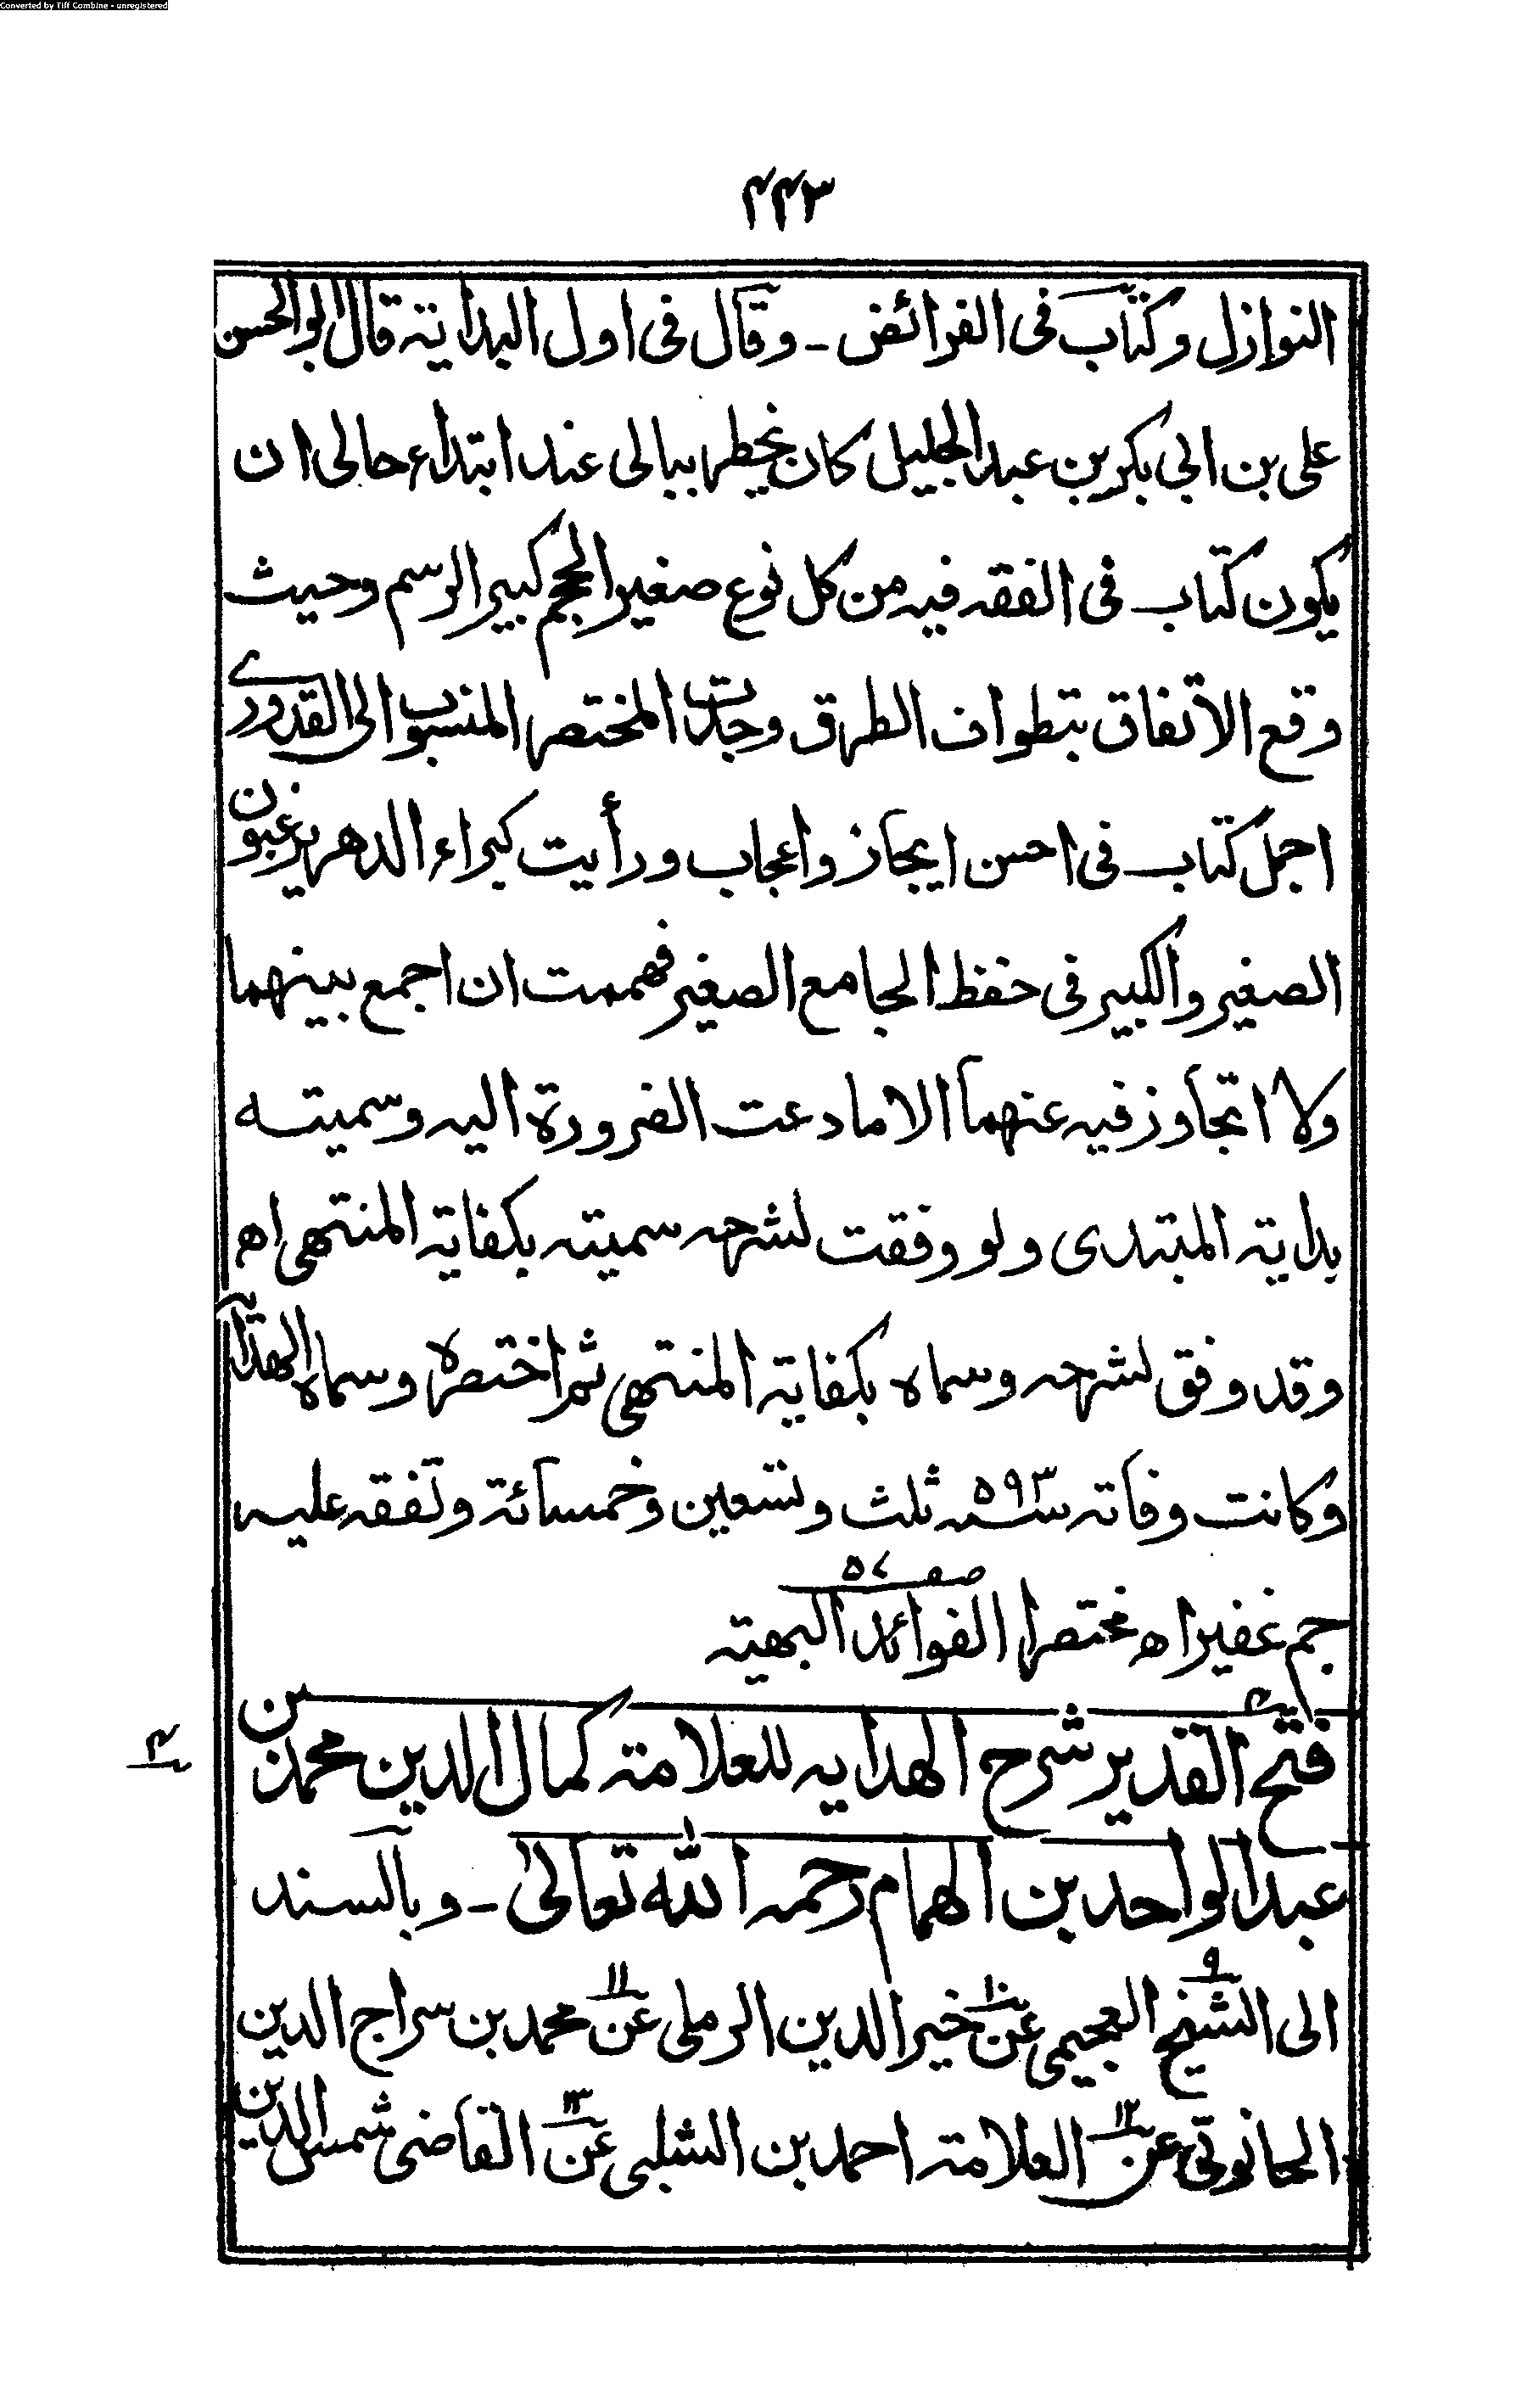 Converted by Tiff Combine - unregistered
۴۴۳
النوازل وكتاب فى الفرائض ـ وقال فى اول البداية قال ابوالحسن
على بن ابى بكر بن عبد الجليل كان يخطر ببالى عند ابتداء حالى ان
يكون كتاب فى الفقه فيه من كل نوع صغير الحجم كبير الرسم وحيث
وقع الاتفاق بتطواف الطرق وجدت المختصر المنسوب الى القدورى
اجمل كتاب فى احسن ايجاز واعجاب ورأيت كبراء الدهر يرغبون
الصغير والكبير فى حفظ الجامع الصغير فهممت ان اجمع بينهما
ولا اتجاوز فيه عنهما الا ما دعت الضرورة اليه وسميته
بداية المبتدى ولو وفقت لشرحه سميته بكفاية المنتهى اه
وقد وفق لشرحه وسماه بكفاية المنتهى ثم اختصره وسماه الهداية
وكانت وفاته سنه ۵۹۳ ثلث وتسعين وخمسائة وتفقه عليه
جم غفير اه مختصرا الفوائد البهية صفـ ۵۷
۴ فتح القدير شرح الهدايه للعلامة كمال الدين محمد بن
عبد الواحد بن الهمام رحمه الله تعالى ـ وبالسند
الى الشيخ العجيمى ۹ عن ۱۰ خير الدين الرملى عن ۱۱ محمد بن سراج الدين
الحانوتى عن ۱۲ العلامة احمد بن الشلبى عن ۱۳ القاضى شمس الدين